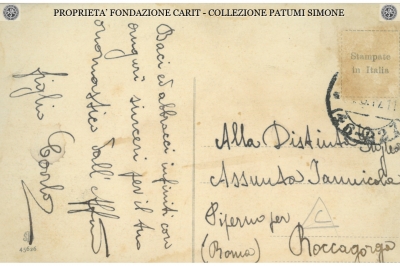 PROPRIETA' FONDAZIONE CARIT - COLLEZIONE PATUMI SIMONE
Stampate
in Italia
Baci ed abbracci infiniti con
auguri sinceri per il tuo
onomastico dall'Aff
figlio Carlo
Alla Distinta
Assunta Iannicola
Piperno per
Roccagorga
(Roma)